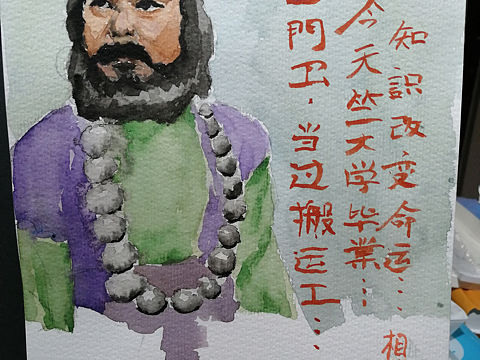 知識改变命运…相
今天丛大学毕業…
門卫，当过搬运工…